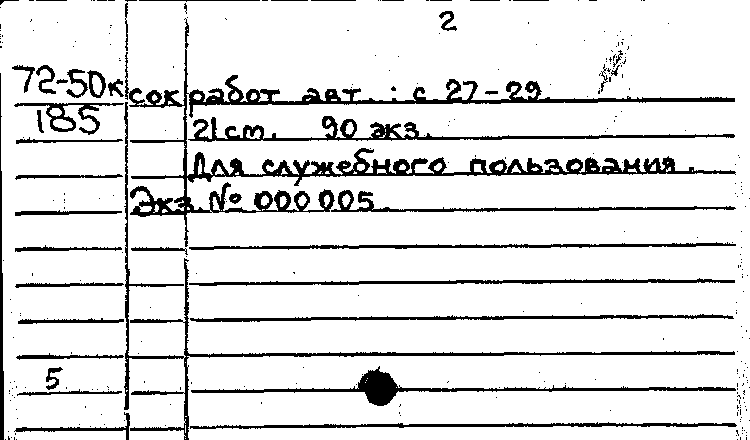 2
72-50к сок работ авт. : с. 27-29.
185 21 cm. 90 экз.
Для служебного пользования.
Экз. № 000005.
5